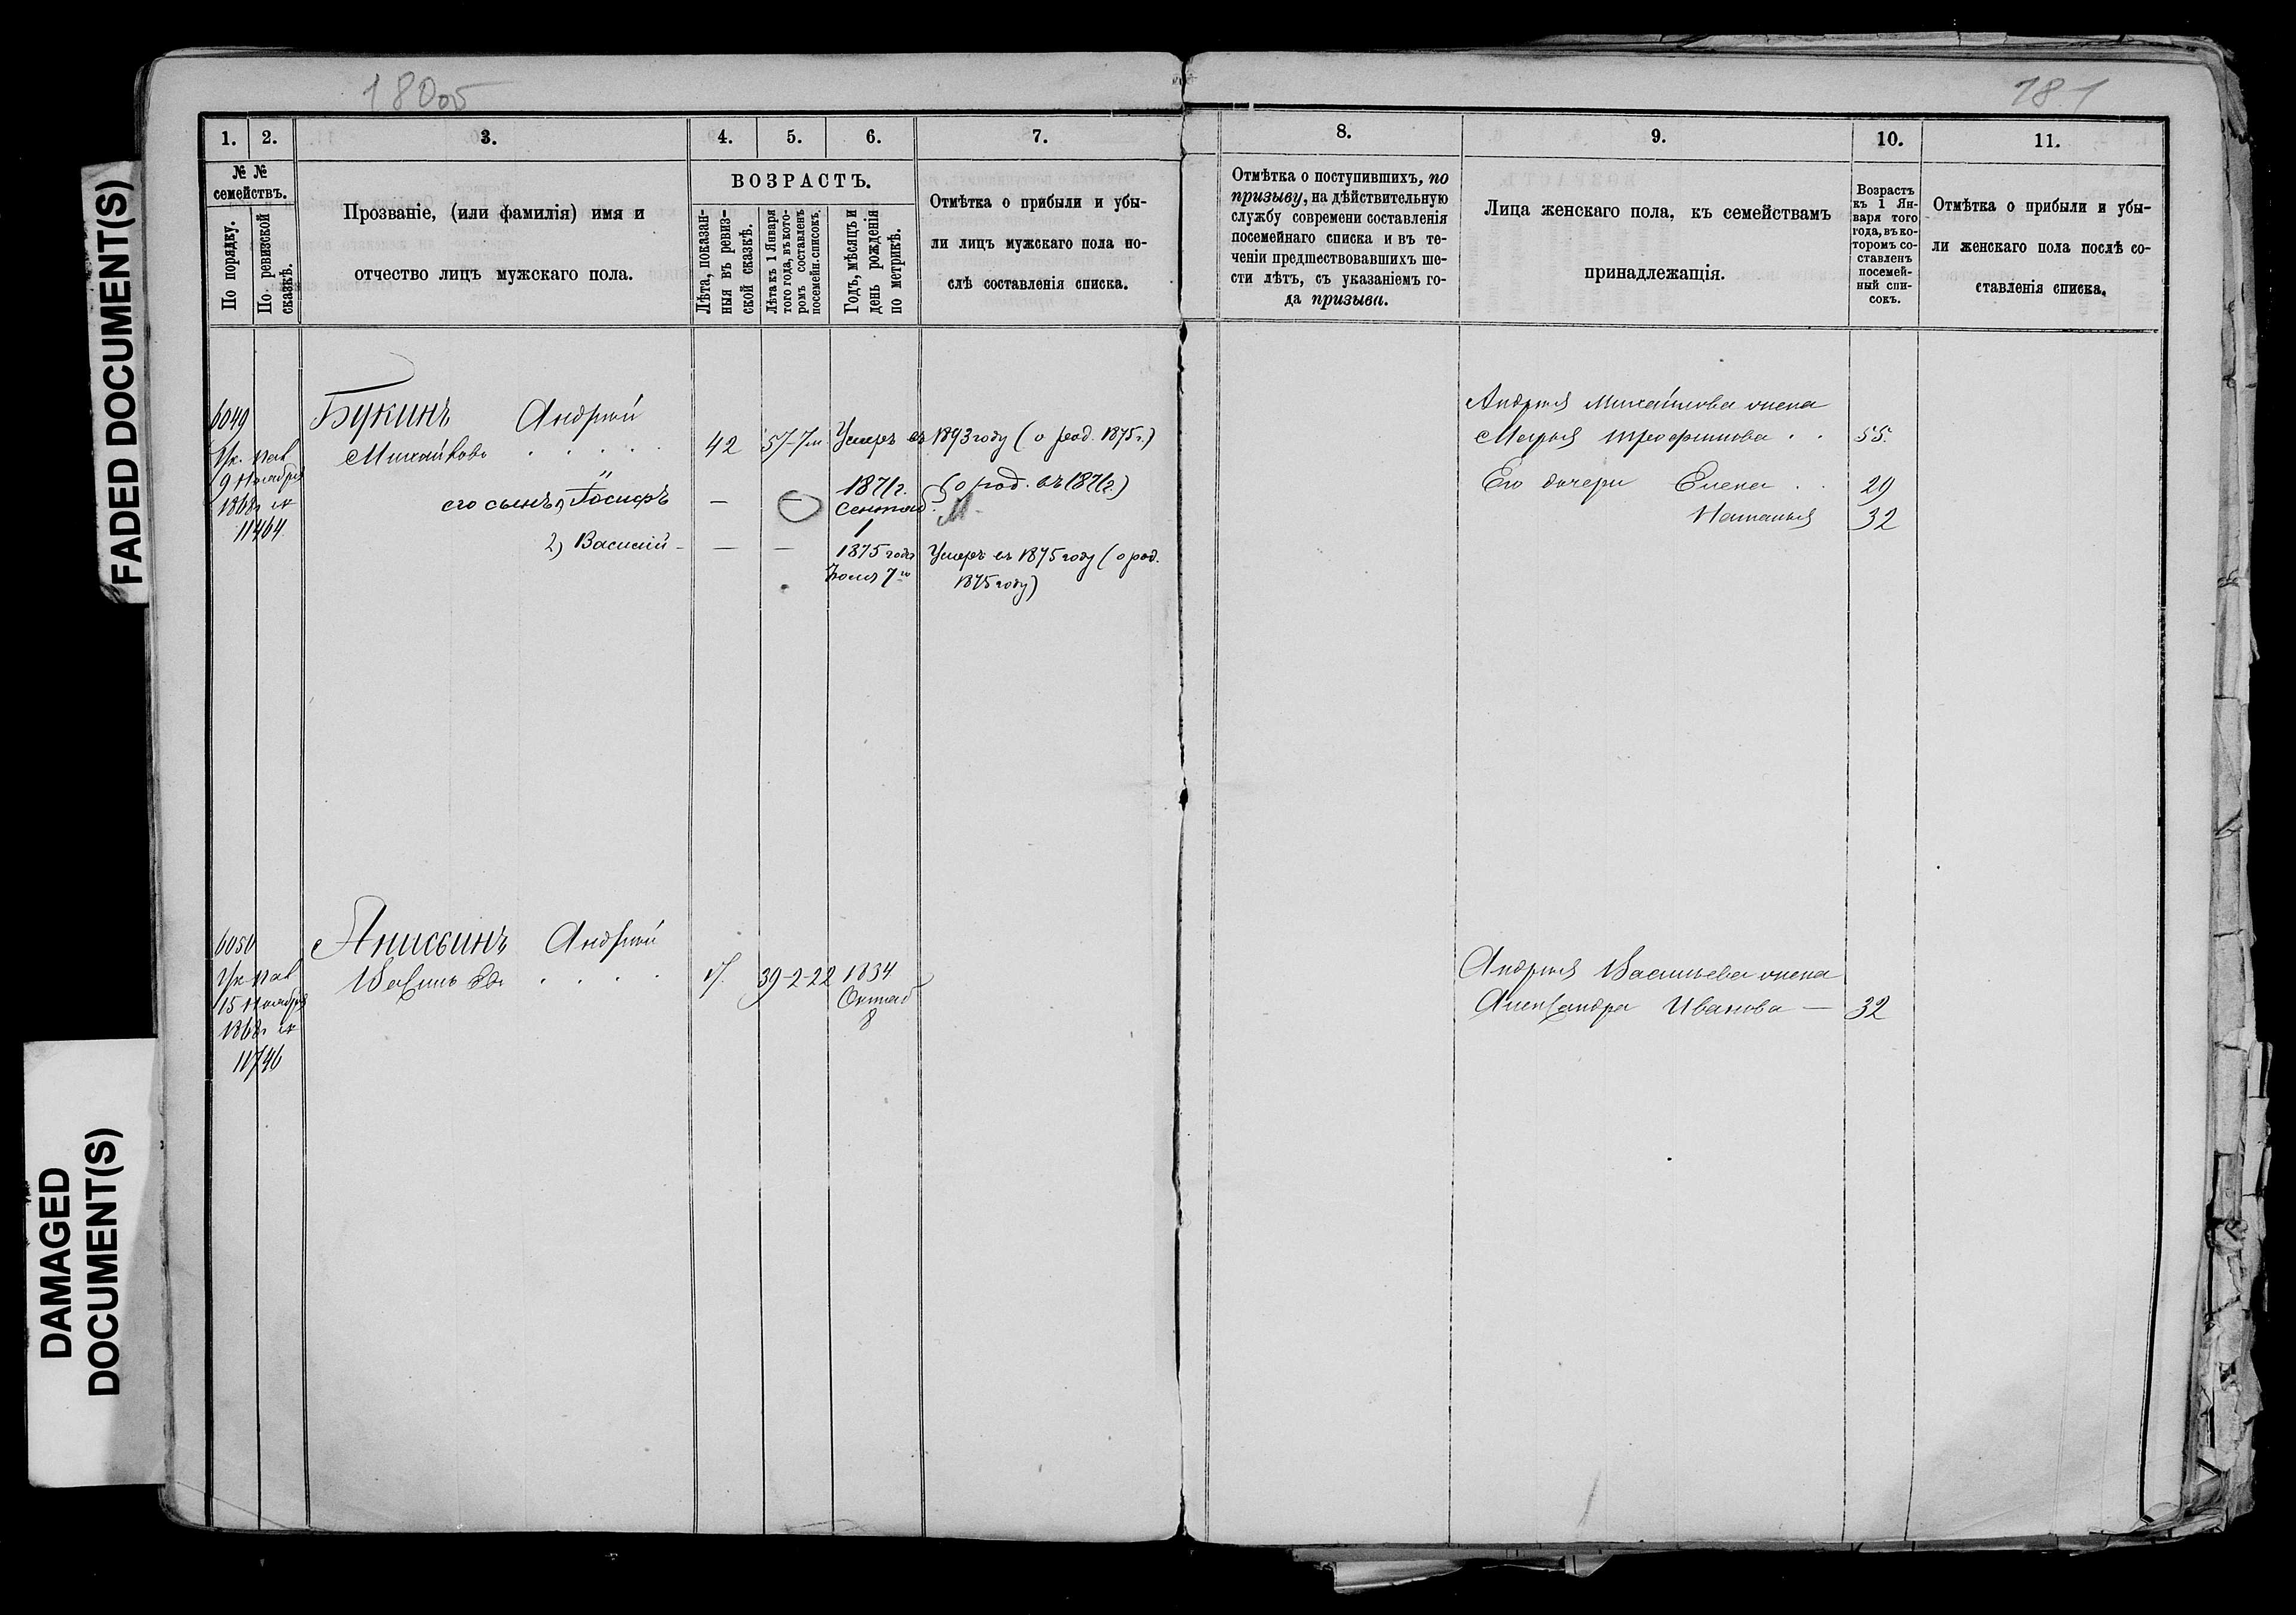 180об
181
FADED DOCUMENT(S)
DAMAGED
DOCUMENT(S)
1.
2.
3.
4.
5.
6.
7.
№ №
семействъ.
По порядку.
По ревизской
сказкѣ.
Прозваніе, (или фамилія) имя и
отчество лицъ мужскаго пола.
ВОЗРАСТЪ.
Лѣта, показан-
ныя въ ревиз-
ской сказкѣ.
Лѣта къ 1 Января
того года, въ кото-
ромъ составленъ
посемейн. списокъ.
Годъ, мѣсяцъ и
день рожденія
по метрикѣ.
Отмѣтка о прибыли и убы-
ли лицъ мужскаго пола по-
слѣ составленія списка.
8.
9.
10.
11.
Отмѣтка о поступившихъ, по
призыву, на дѣйствительную
службу современи составленія
посемейнаго списка и въ те-
ченіи предшествовавшихъ ше-
сти лѣтъ, съ указаніемъ го-
да призыва.
Лица женскаго пола, къ семействамъ
принадлежащія.
Возрастъ
къ 1 Ян-
варя того
года, въ ко-
торомъ со-
ставленъ
посемей-
ный спи-
сокъ.
Отмѣтка о прибыли и убы-
ли женскаго пола послѣ со-
ставленія списка.
6049
9 Ноября
1868г
11464
Букинъ Андрей
Михайловъ 42 57-7м Умеръ въ 1893 году (о род. 1875г.)
его сынъ Іосифъ — — 1871г. Сентяб. 1 (о род. въ 1871г.)
2) Василий — — — 1875 года Іюля 7го Умеръ въ 1875 году (о род.
1875 году)
Андрея Михайлова жена
Марья Трофимова 55.
Его дочери Елена 29
Наталья 32
6050
15 Ноября
1868г
11746
Анисьинъ Андрей
Васильевъ 39-2-22 1834
Октяб
8
Андрея Васильева жена
Александра Иванова — 32